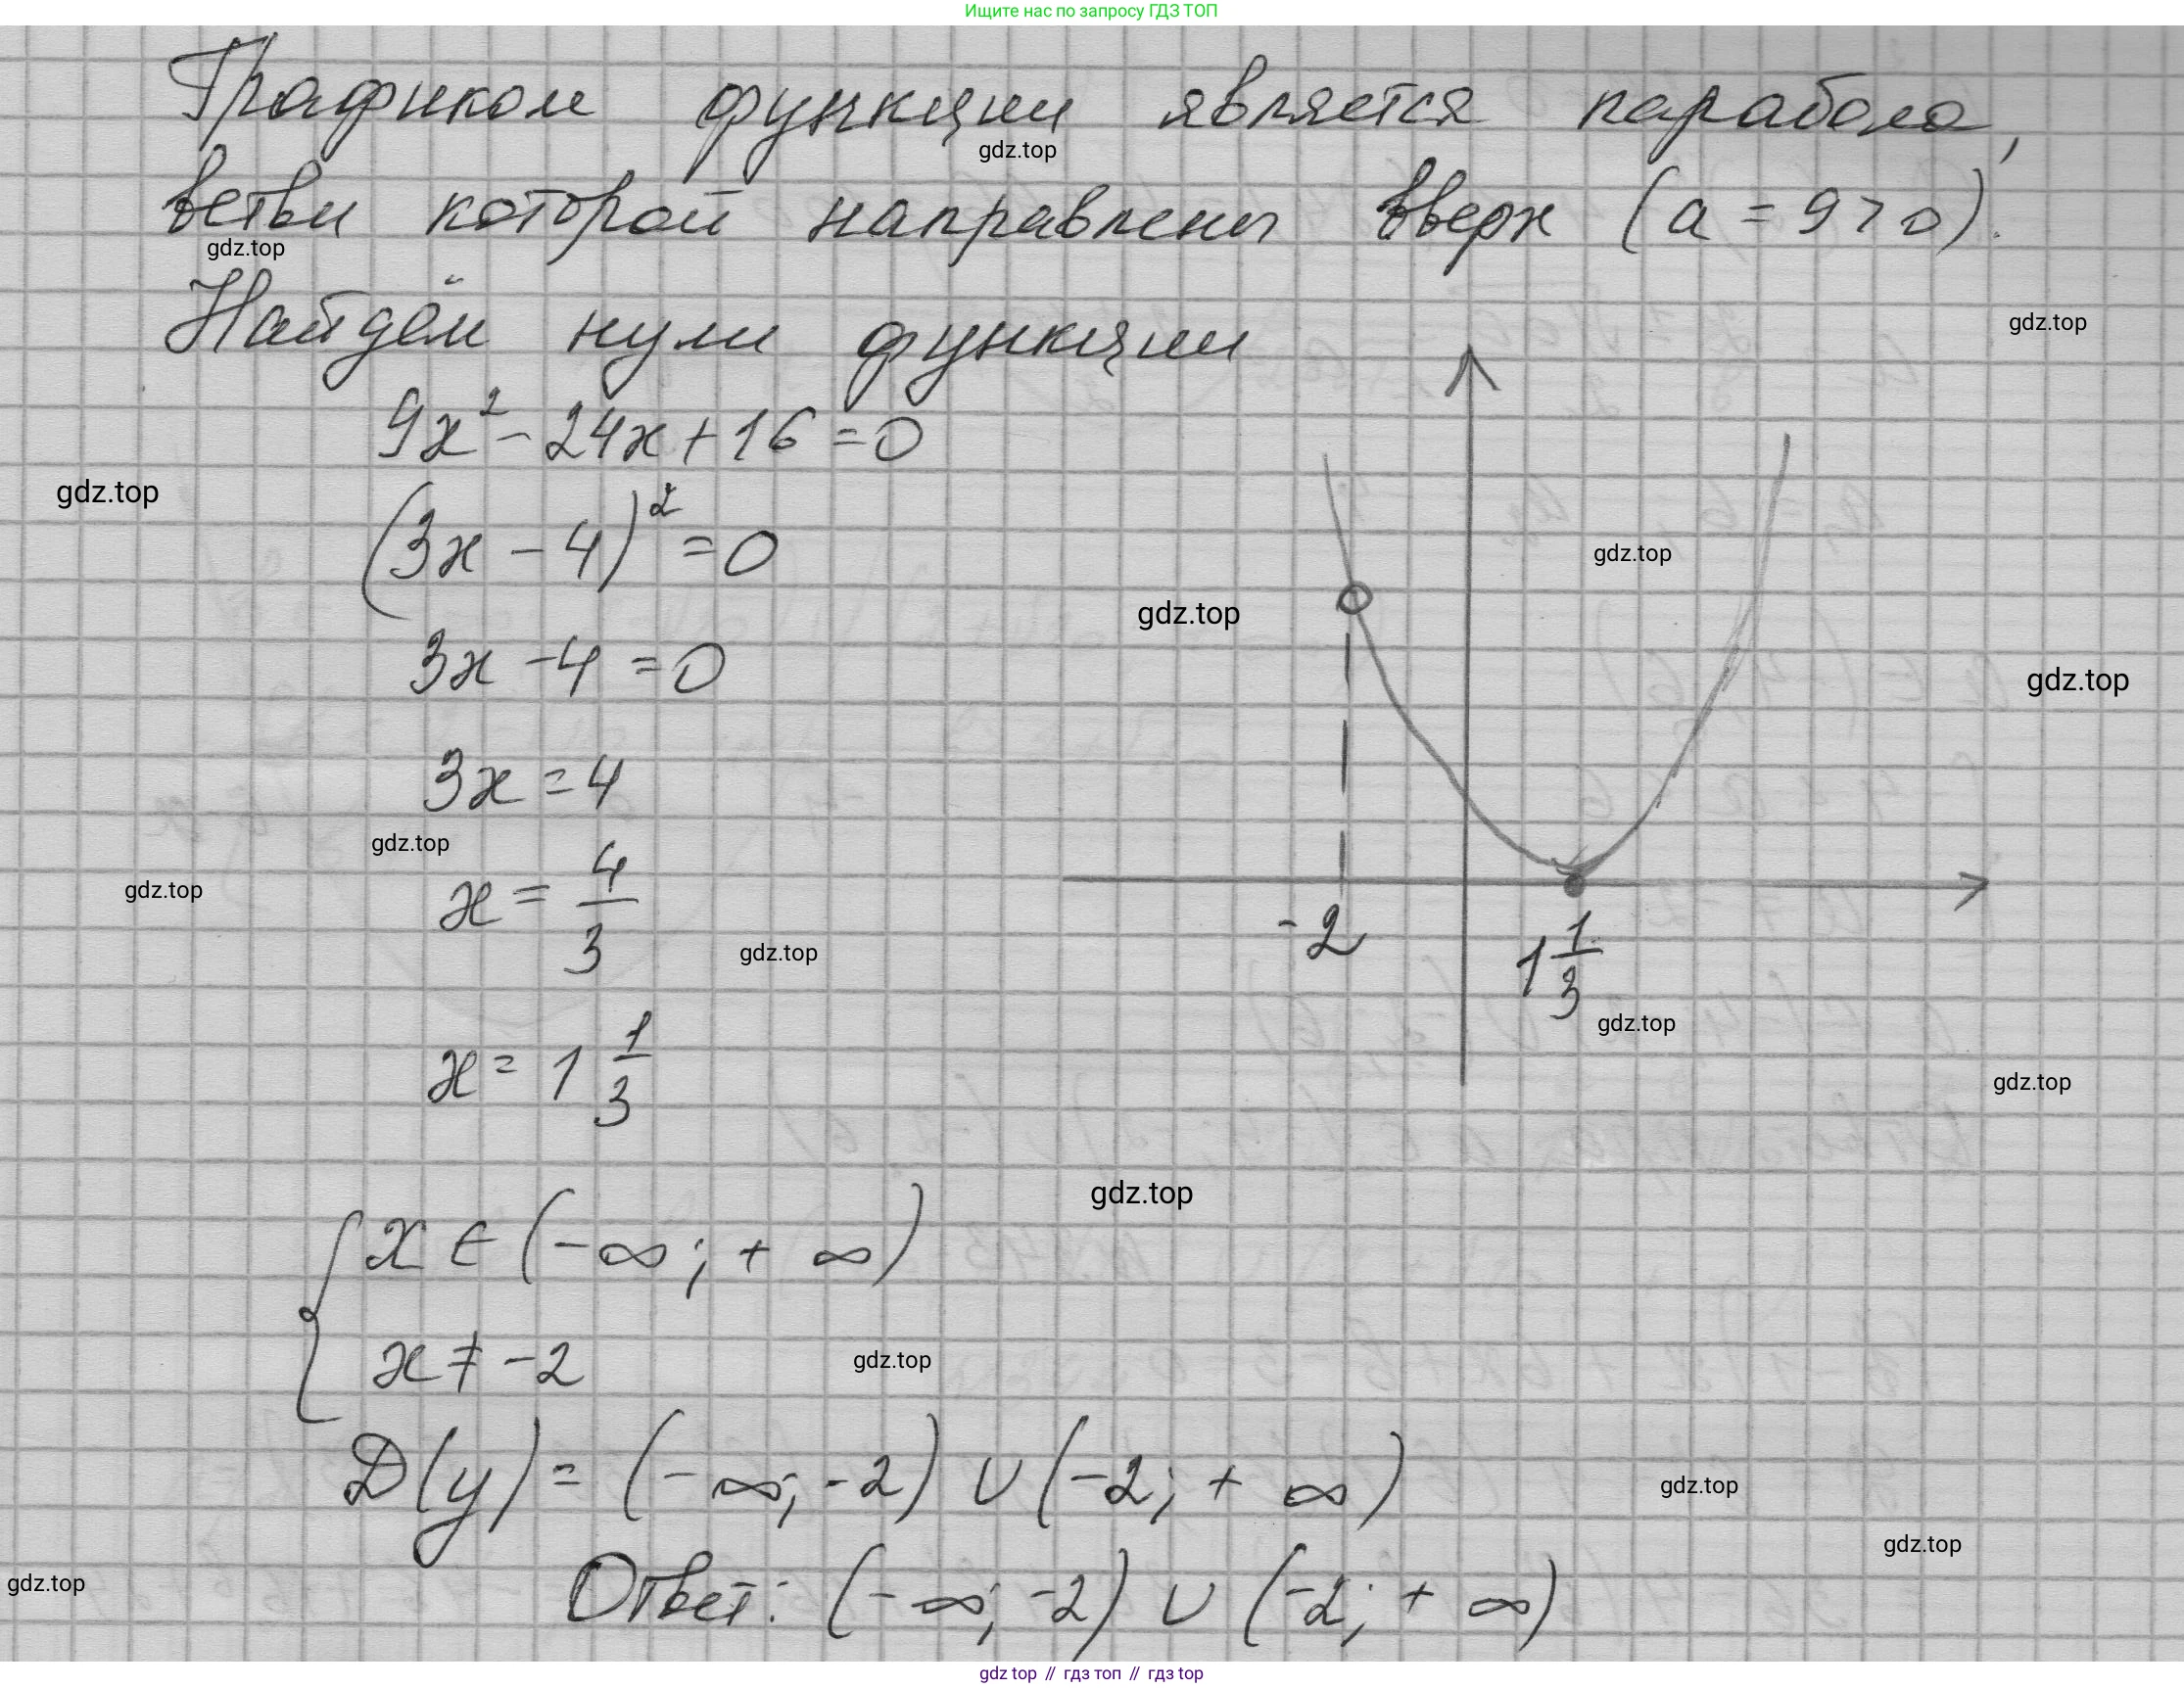 Ищите нас по запросу ГДЗ ТОП
Графиком функции является парабола,
gdz.top
ветви которой направлены вверх (a = 9 > 0).
gdz.top
Найдём нули функции
gdz.top
9x² - 24x + 16 = 0
gdz.top
(3x - 4)² = 0
gdz.top
gdz.top
3x - 4 = 0
gdz.top
3x = 4
gdz.top
x = 4/3
gdz.top
-2
1 1/3
gdz.top
gdz.top
x = 1 1/3
gdz.top
gdz.top
{ x ∈ (-∞; + ∞)
x ≠ -2
gdz.top
D(y) = (-∞; -2) ∪ (-2; + ∞)
gdz.top
gdz.top
Ответ: (-∞; -2) ∪ (-2; + ∞)
gdz.top
gdz top // гдз топ // гдз top